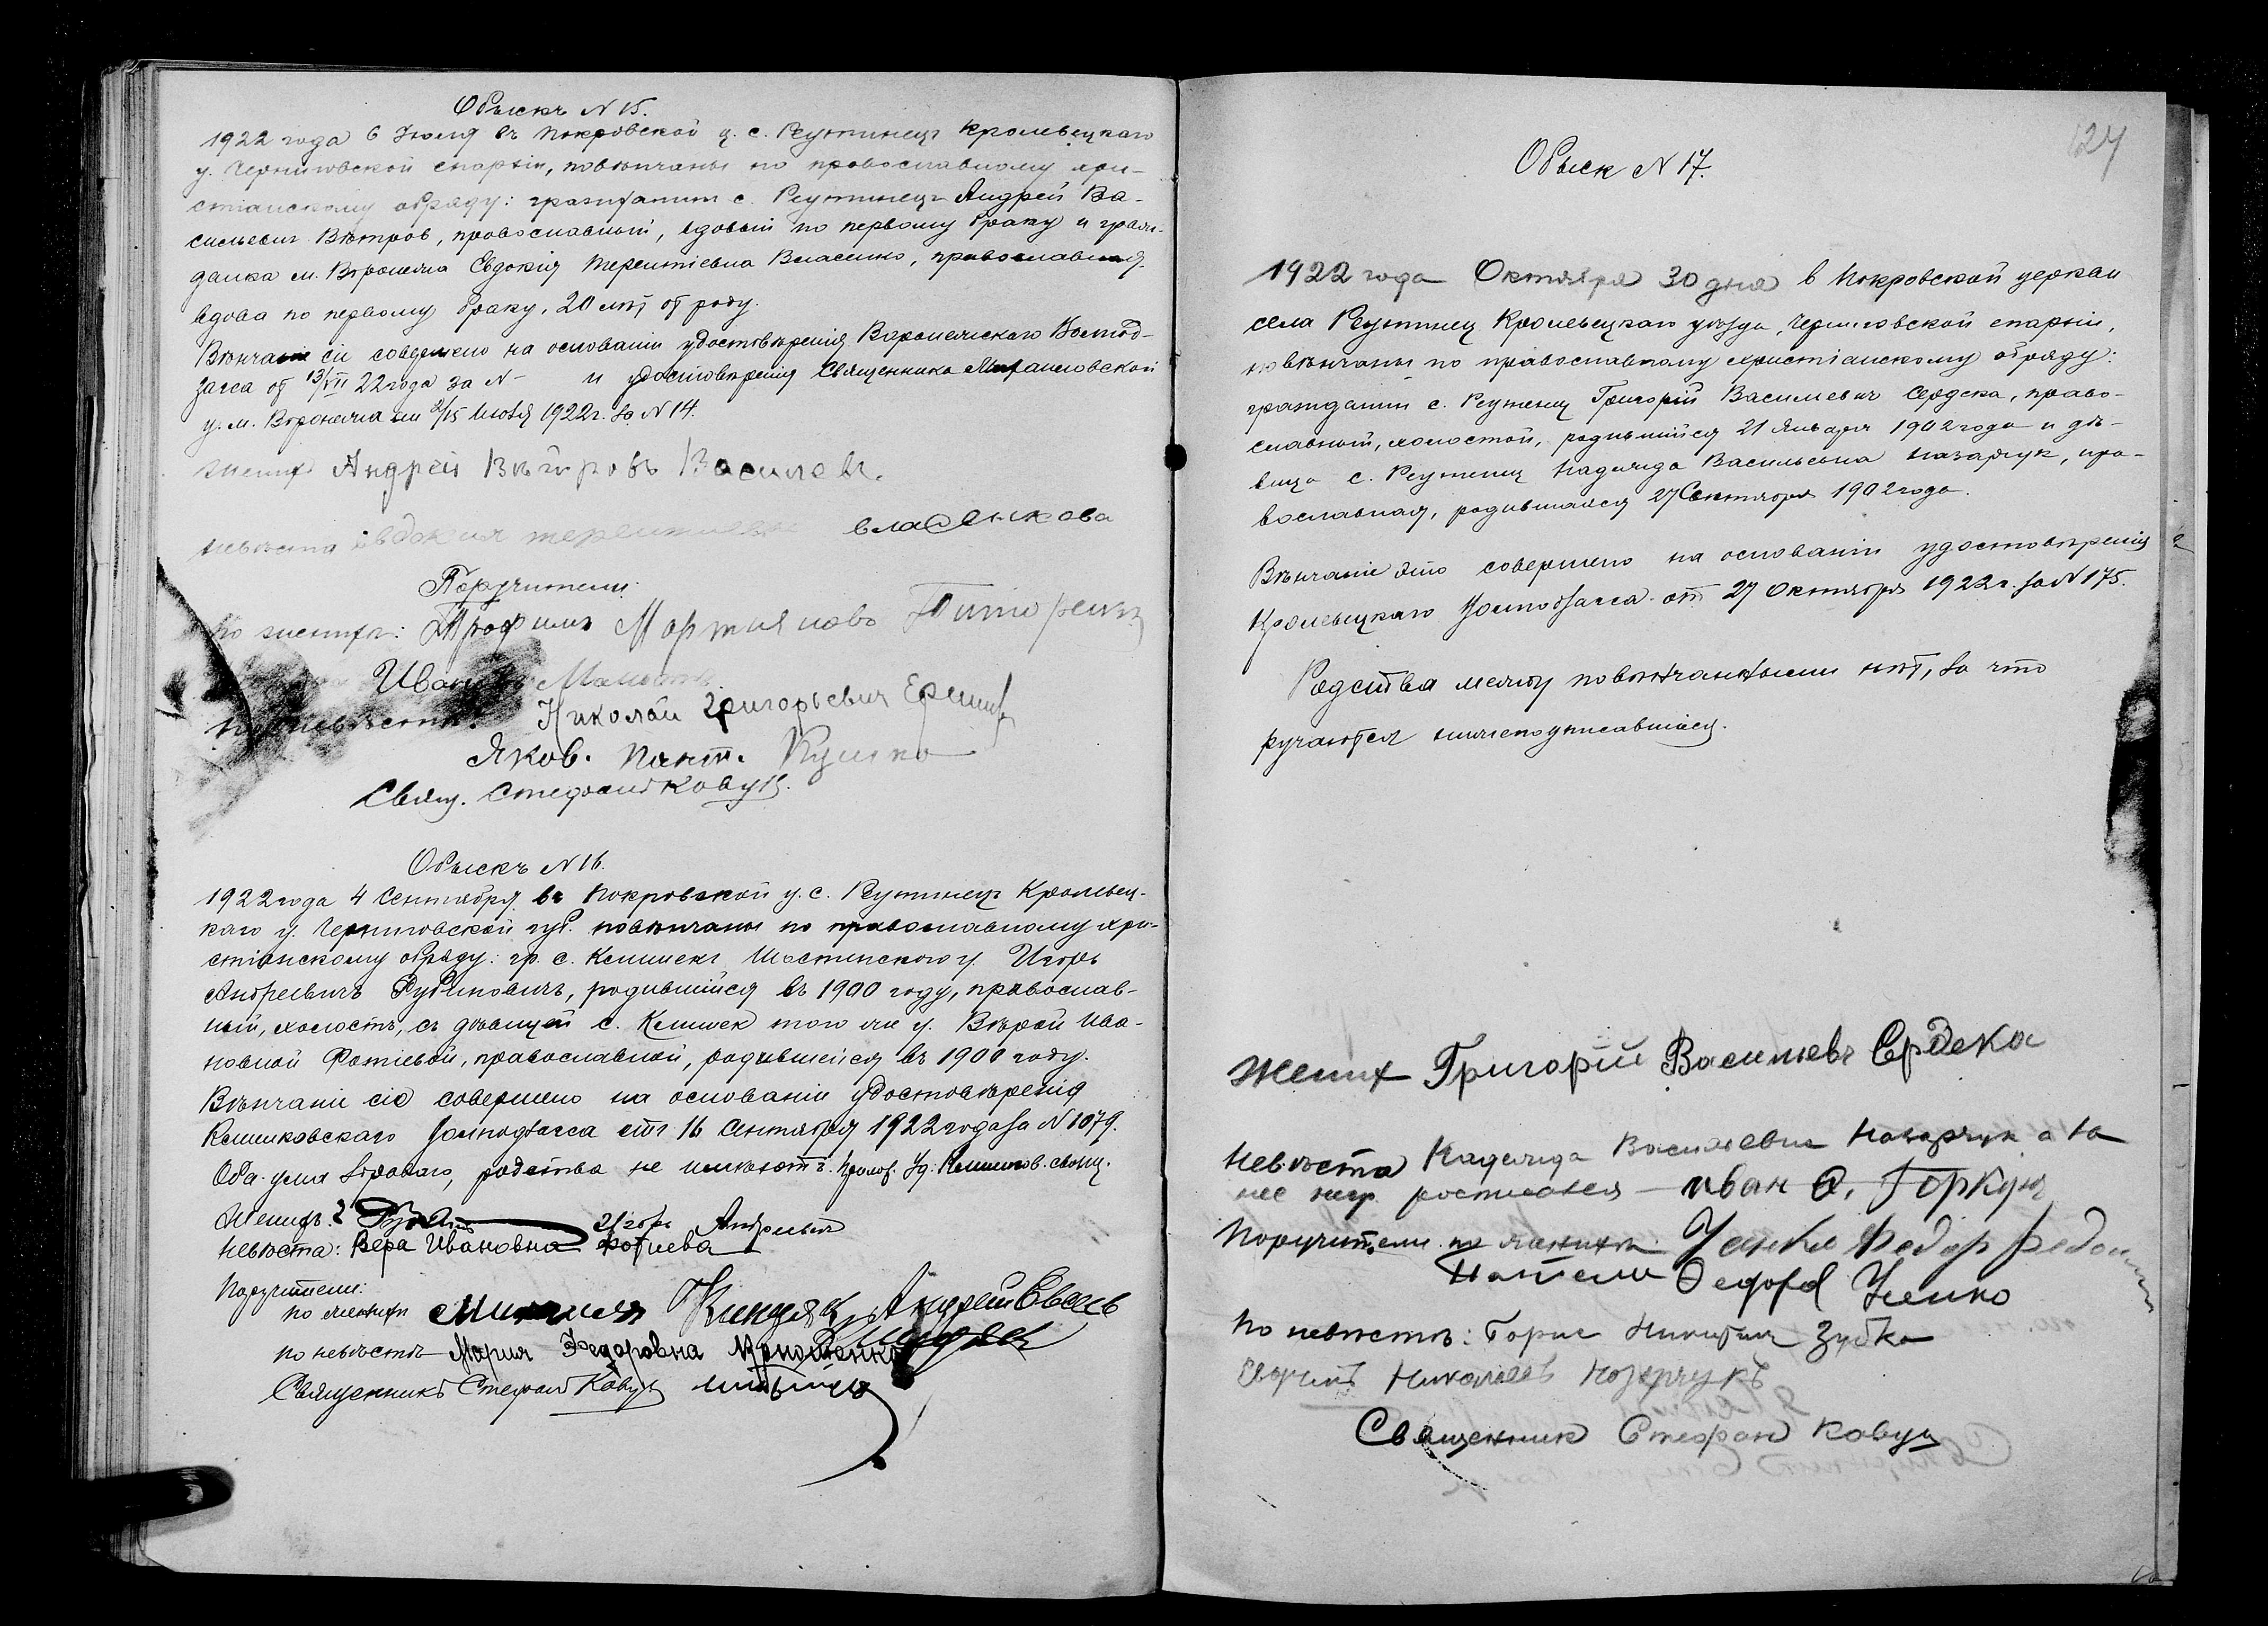 Обыскъ N 15.
1922 года 6 Іюля въ Покровской ц. с. Реутинецъ Кролевецкаго
у. Черниговской епархіи, повѣнчаны по православному хри-
стіанскому обряду: гражданин с. Реутинецъ Андрей Ва-
сильевич Вѣтров, православный, вдовый по первому браку и граж-
данка м. Воронежа Евдокія Терентіевна Власенко, православная,
вдова по первому браку, 20 лѣт от роду.
Вѣнчаніе сіе совершено на основаніи удостовѣренія Воронежскаго
Загса от 13/VII 22 года за N – и удостовѣренія Священника Михаиловской
ц. м. Воронежа от 2/15 Іюля 1922 г. за N 14.
Жених Андрей Вѣтровъ Василев.
Невѣста Евдокия терентиевна власенкова
Поручители:
По жениху: Трофимъ Мартияново
Иван
по невѣстѣ: Николай Григорьевич
Яков. Пант.
Свящ. Стефанъ Ковуц.
Обыскъ N 16.
1922 года 4 Сентября въ Покровской ц. с. Реутинецъ Кролевец-
каго у. Черниговской губ. повѣнчаны по православному хри-
стіанскому обряду: гр. с. Клишекъ Шостенского у. Игорь
Андреевичъ Рубиновичъ, родившійся въ 1900 году, православ-
ный, холостъ, съ дѣвицей с. Клишек того же у. Вѣрой Ива-
новной Фотіевой, православной, родившейся въ 1900 году.
Вѣнчаніе сіе совершено на основаніи удостовѣренія
Клишковскаго отъ 16 Сентября 1922 года за N 1079.
Оба ума здраваго, родства не имѣютъ.
Женихъ: Игорь Андреевич
Невѣста: Вера Ивановна Фотиева
Поручители:
по жениху Андрей
по невѣстѣ Мария Федоровна
Священникъ Стефанъ Ковуц
127
Обыск N 17.
1922 года Октября 30 дня в Покровской церкви
села Реутинец Кролевецкаго уѣзда, Черниговской епархіи,
повѣнчаны по православному христіанскому обряду:
гражданин с. Реутинец Григорій Васильевич Сердека, право-
славный, холостой, родившійся 21 Января 1902 года и дѣ-
вица с. Реутинец Надежда Васильевна Назарчук, пра-
вославная, родившаяся 27 Сентября 1902 года.
Вѣнчаніе это совершено на основаніи удостовѣренія
Кролевецкаго от 27 Октября 1922 г. за N 175.
Родства между повѣнчанными нѣт, за что
ручаются нижеподписавшіеся.
Жених Григорій Васильевъ Сердека
Невѣста Надежда Васильевна Назарчук а за
нее негр. росписался – иван Ф. Горкун
Поручители по жениху: Федор
Федор
По невѣстѣ: Борис Никитич Зубко
Николаевъ Назарчукъ
Священник Стефан Ковуц